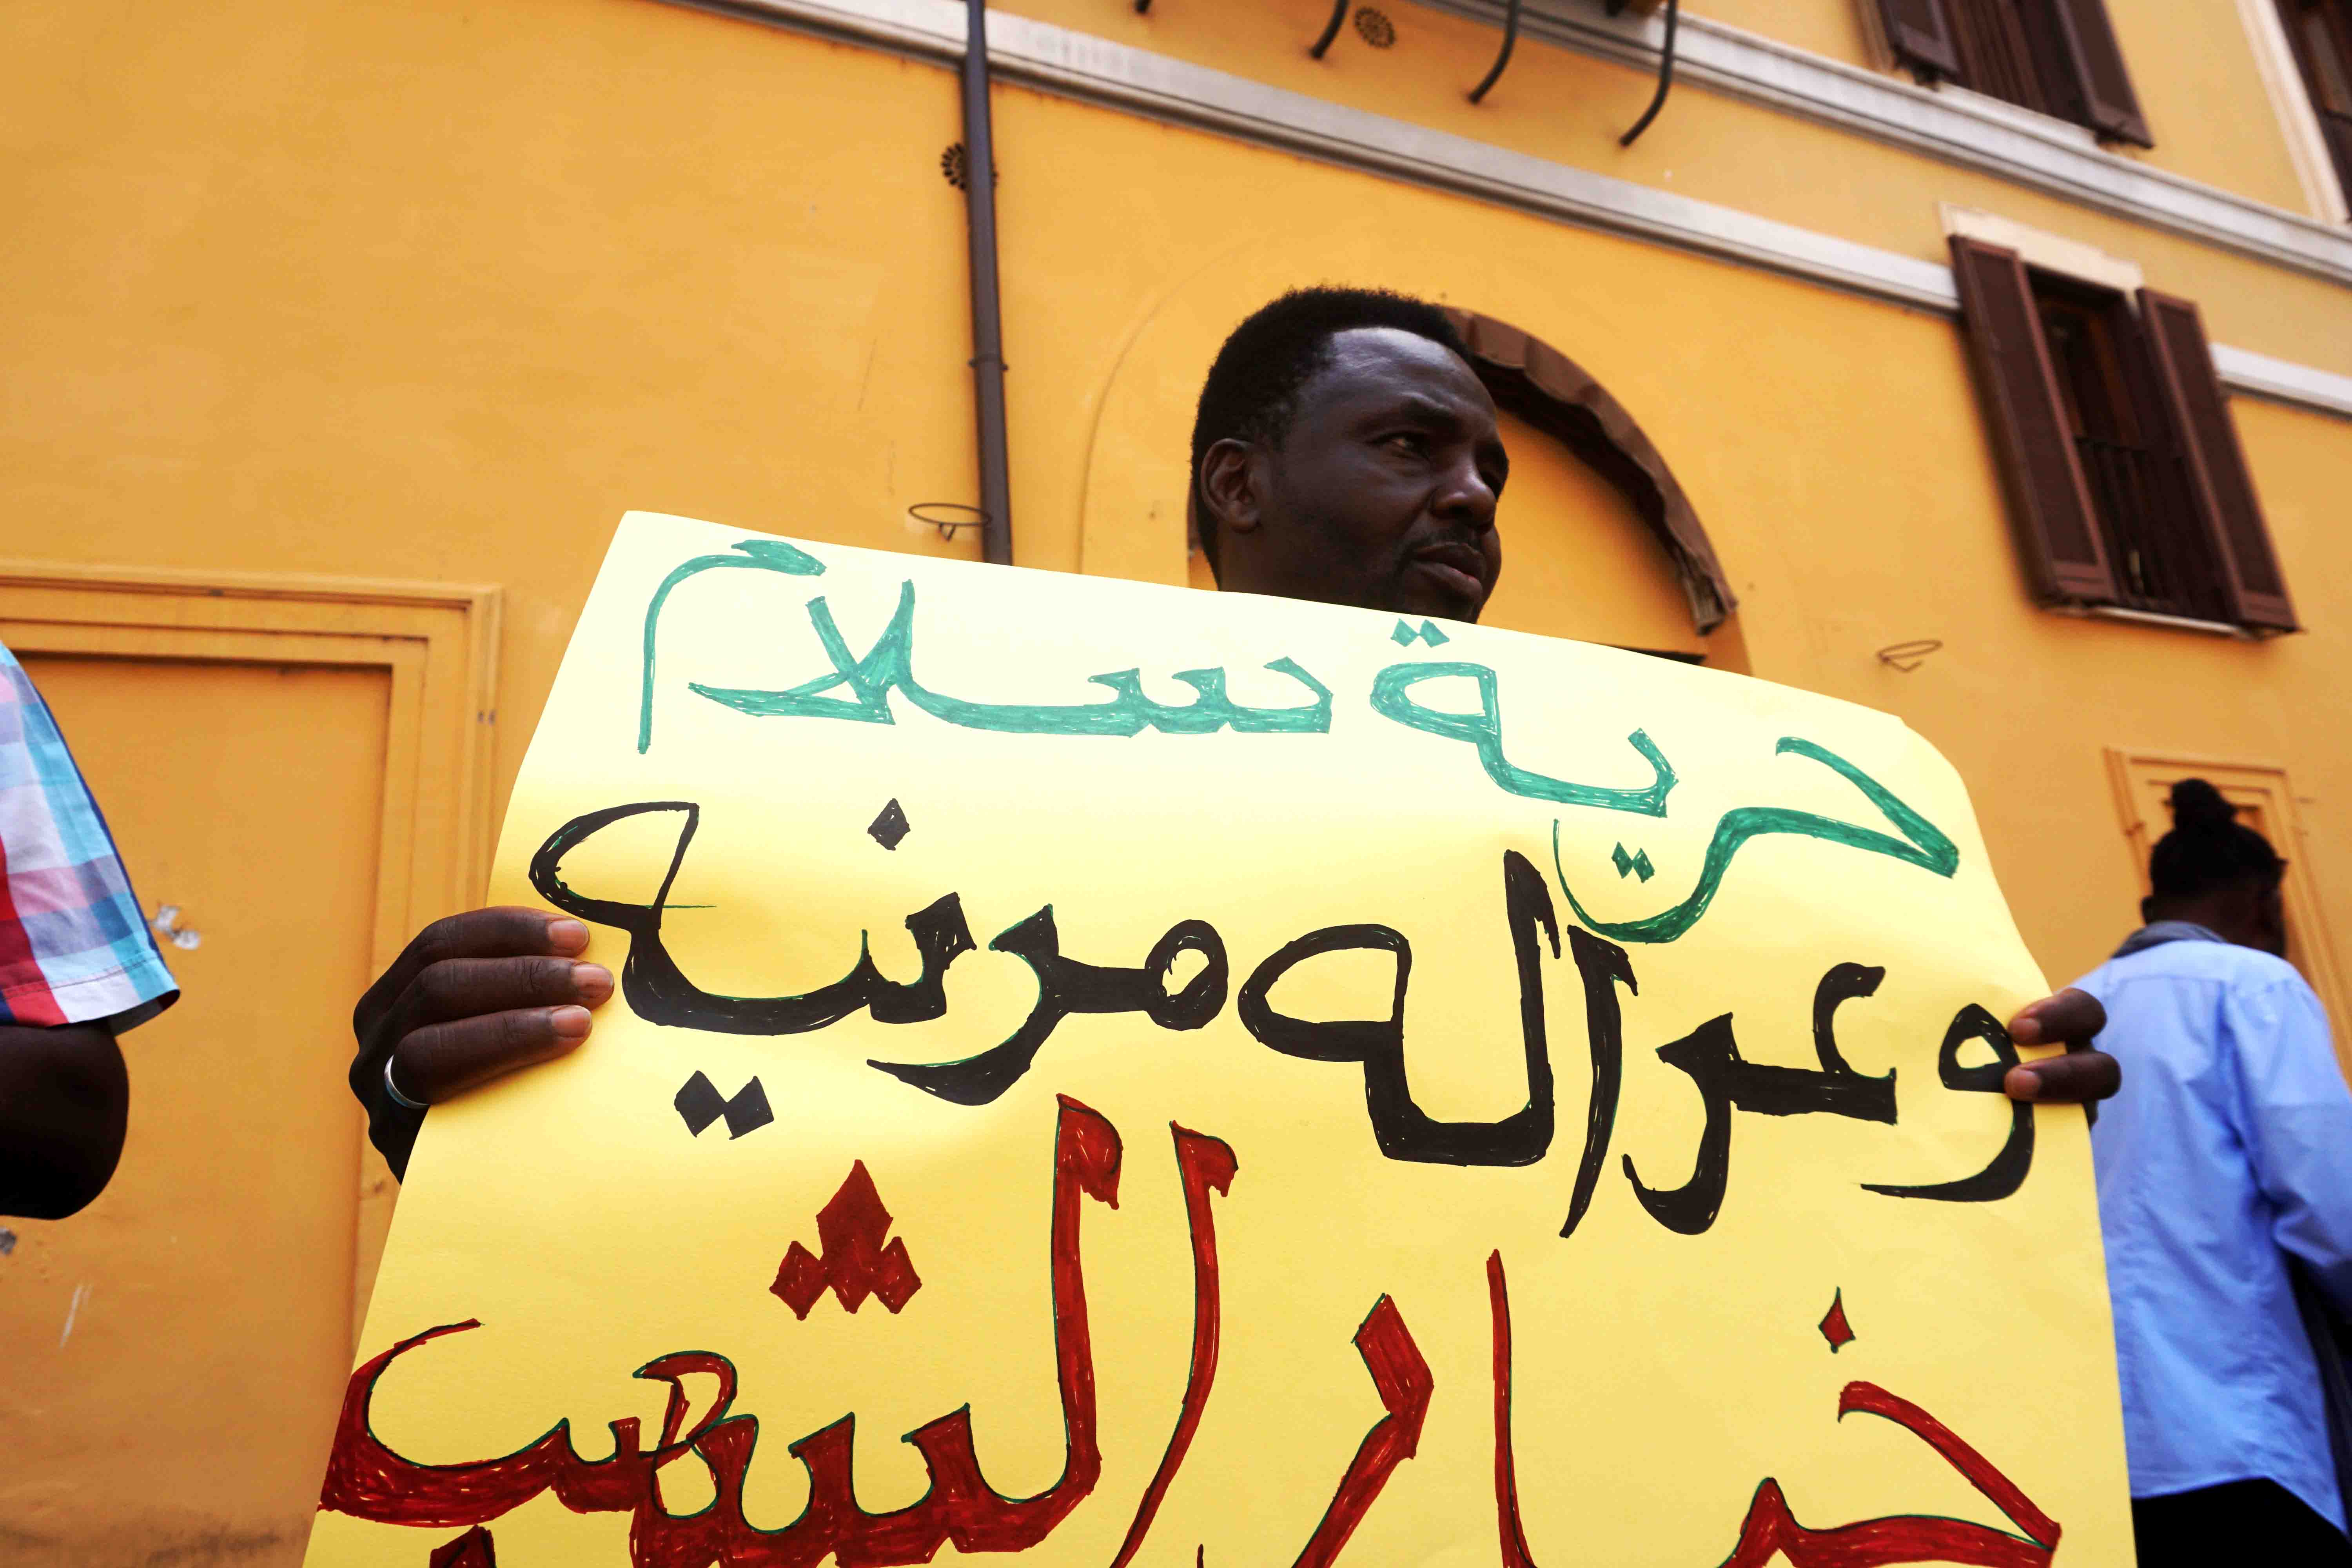 حرية سلام
وعداله مدنيه
خيار الشعب